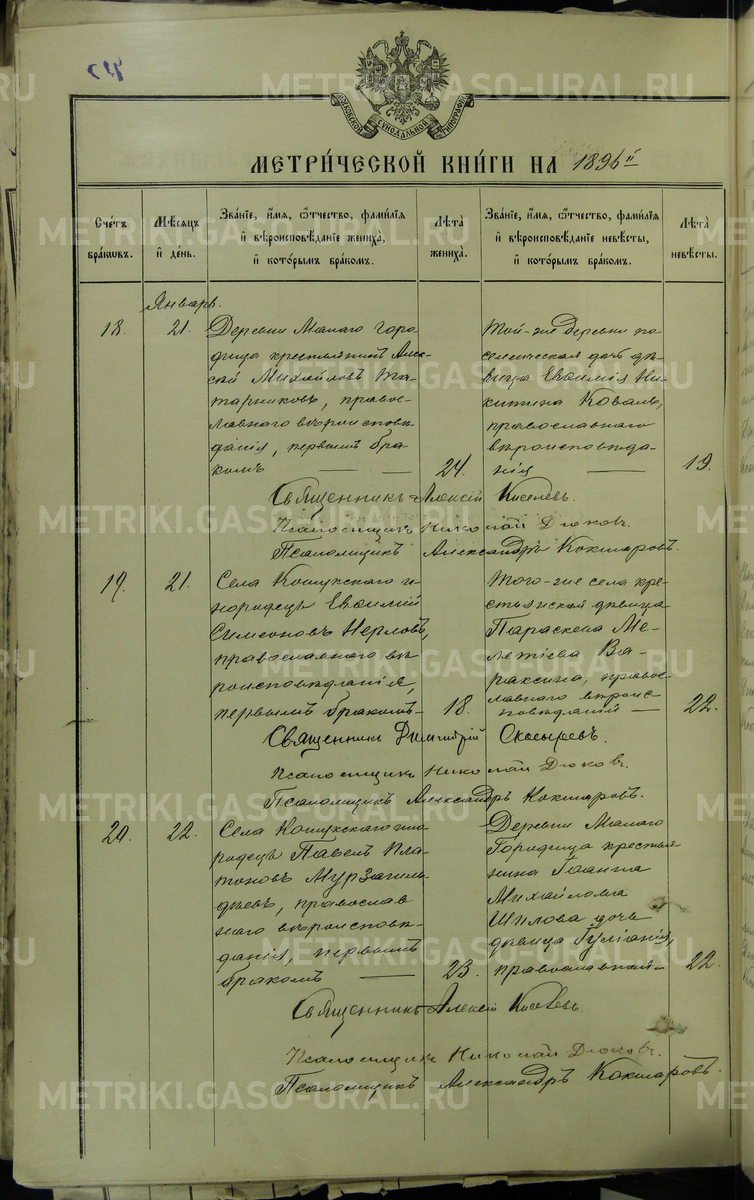 54
МОСКОВСКОЙ СѴНОДАЛЬНОЙ ТИПОГРАФІИ
МЕТРИ́ЧЕСКОЙ КНИ́ГИ НА 1896й
Сче́тъ бра́кωвъ.
Мѣ́сѧцъ и҆ де́нь.
Зва́нїе, и҆́мѧ, ѻ҆́тчество, фами́лїѧ
и҆ вѣроисповѣ́данїе жениха̀,
и҆ кото́рымъ бра́комъ.
Лѣ́та жениха̀.
Зва́нїе, и҆́мѧ, ѻ҆́тчество, фами́лїѧ
и҆ вѣроисповѣ́данїе невѣ́сты,
и҆ кото́рымъ бра́комъ.
Лѣ́та невѣ́сты.
Январь.
18.
21.
Деревни Малаго Горо-
дища крестьянинъ Алек-
сѣй Михайловъ Та-
тарниковъ, право-
славнаго вѣроисповѣ-
данія, первымъ бра-
комъ
24.
Той-же деревни по-
селенческая дочь дѣ-
вица Евѳимія Ни-
китина Коваль,
православнаго
вѣроисповѣда-
нія
19.
Священникъ Алексій Киселевъ.
Псаломщикъ Николай Дюковъ.
Псаломщикъ Александръ Кокшаровъ.
19.
21.
Села Кошукскаго и-
нородецъ Евѳимій
Симеоновъ Нерловъ,
православнаго вѣ-
роисповѣданія,
первымъ бракомъ
18.
Того-же села кре-
стьянская дѣвица
Параскева Ме-
летіева Ва-
раксина, право-
славнаго вѣроис-
повѣданія
22.
Священникъ Димитрій Скосыревъ.
Псаломщикъ Николай Дюковъ.
Псаломщикъ Александръ Кокшаровъ.
20.
22.
Села Кошукскаго ино-
родецъ Павелъ Пла-
тоновъ Мурзагиль-
дѣевъ, православ
наго вѣроисповѣ-
данія, первымъ
бракомъ
23.
Деревни Малаго
Городища крестья-
нина Іоанна
Михайлова
Шилова дочь
дѣвица Іуліанія,
православной
22.
Священникъ Алексій Киселевъ.
Псаломщикъ Николай Дюковъ.
Псаломщикъ Александръ Кокшаровъ.
METRIKI.GASO-URAL.RU